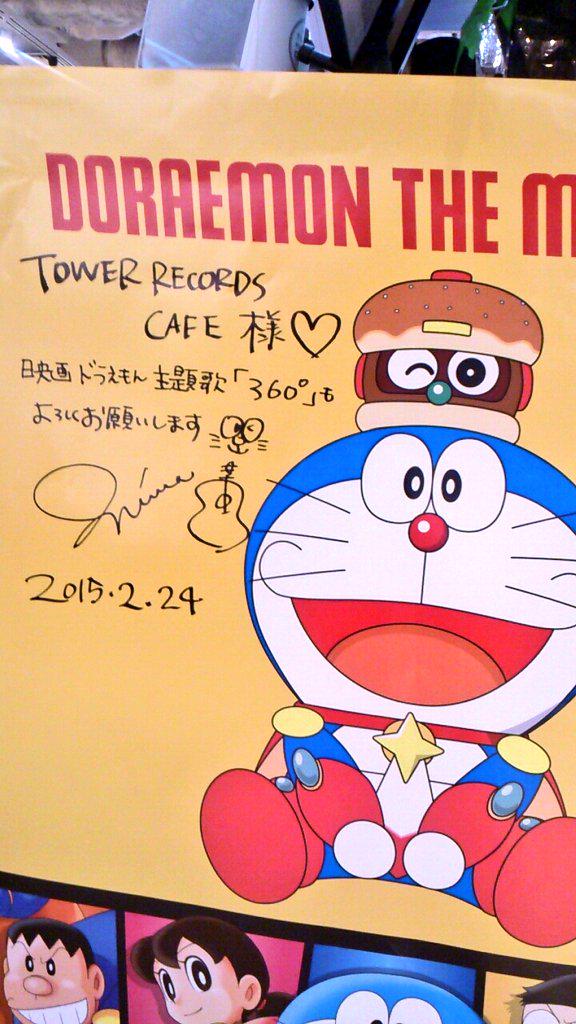 DORAEMON THE M
TOWER RECORDS
CAFE 様♡
映画ドラえもん 主題歌「360°」も
よろしくお願いします
miwa
2015.2.24